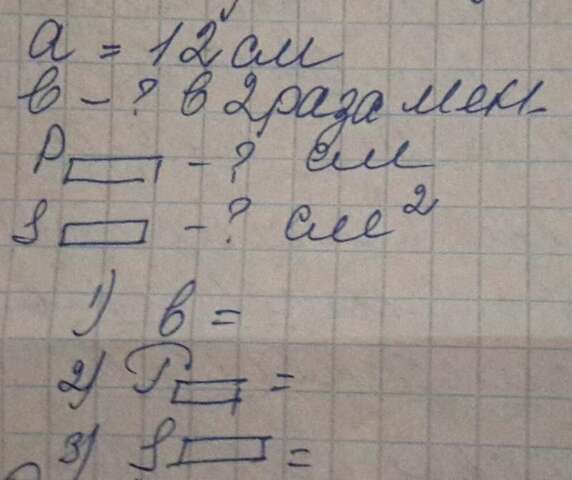 а = 12 см
в - ? в 2 раза мен.
P - ? см
S - ? см²
1) в =
2) P =
3) S =